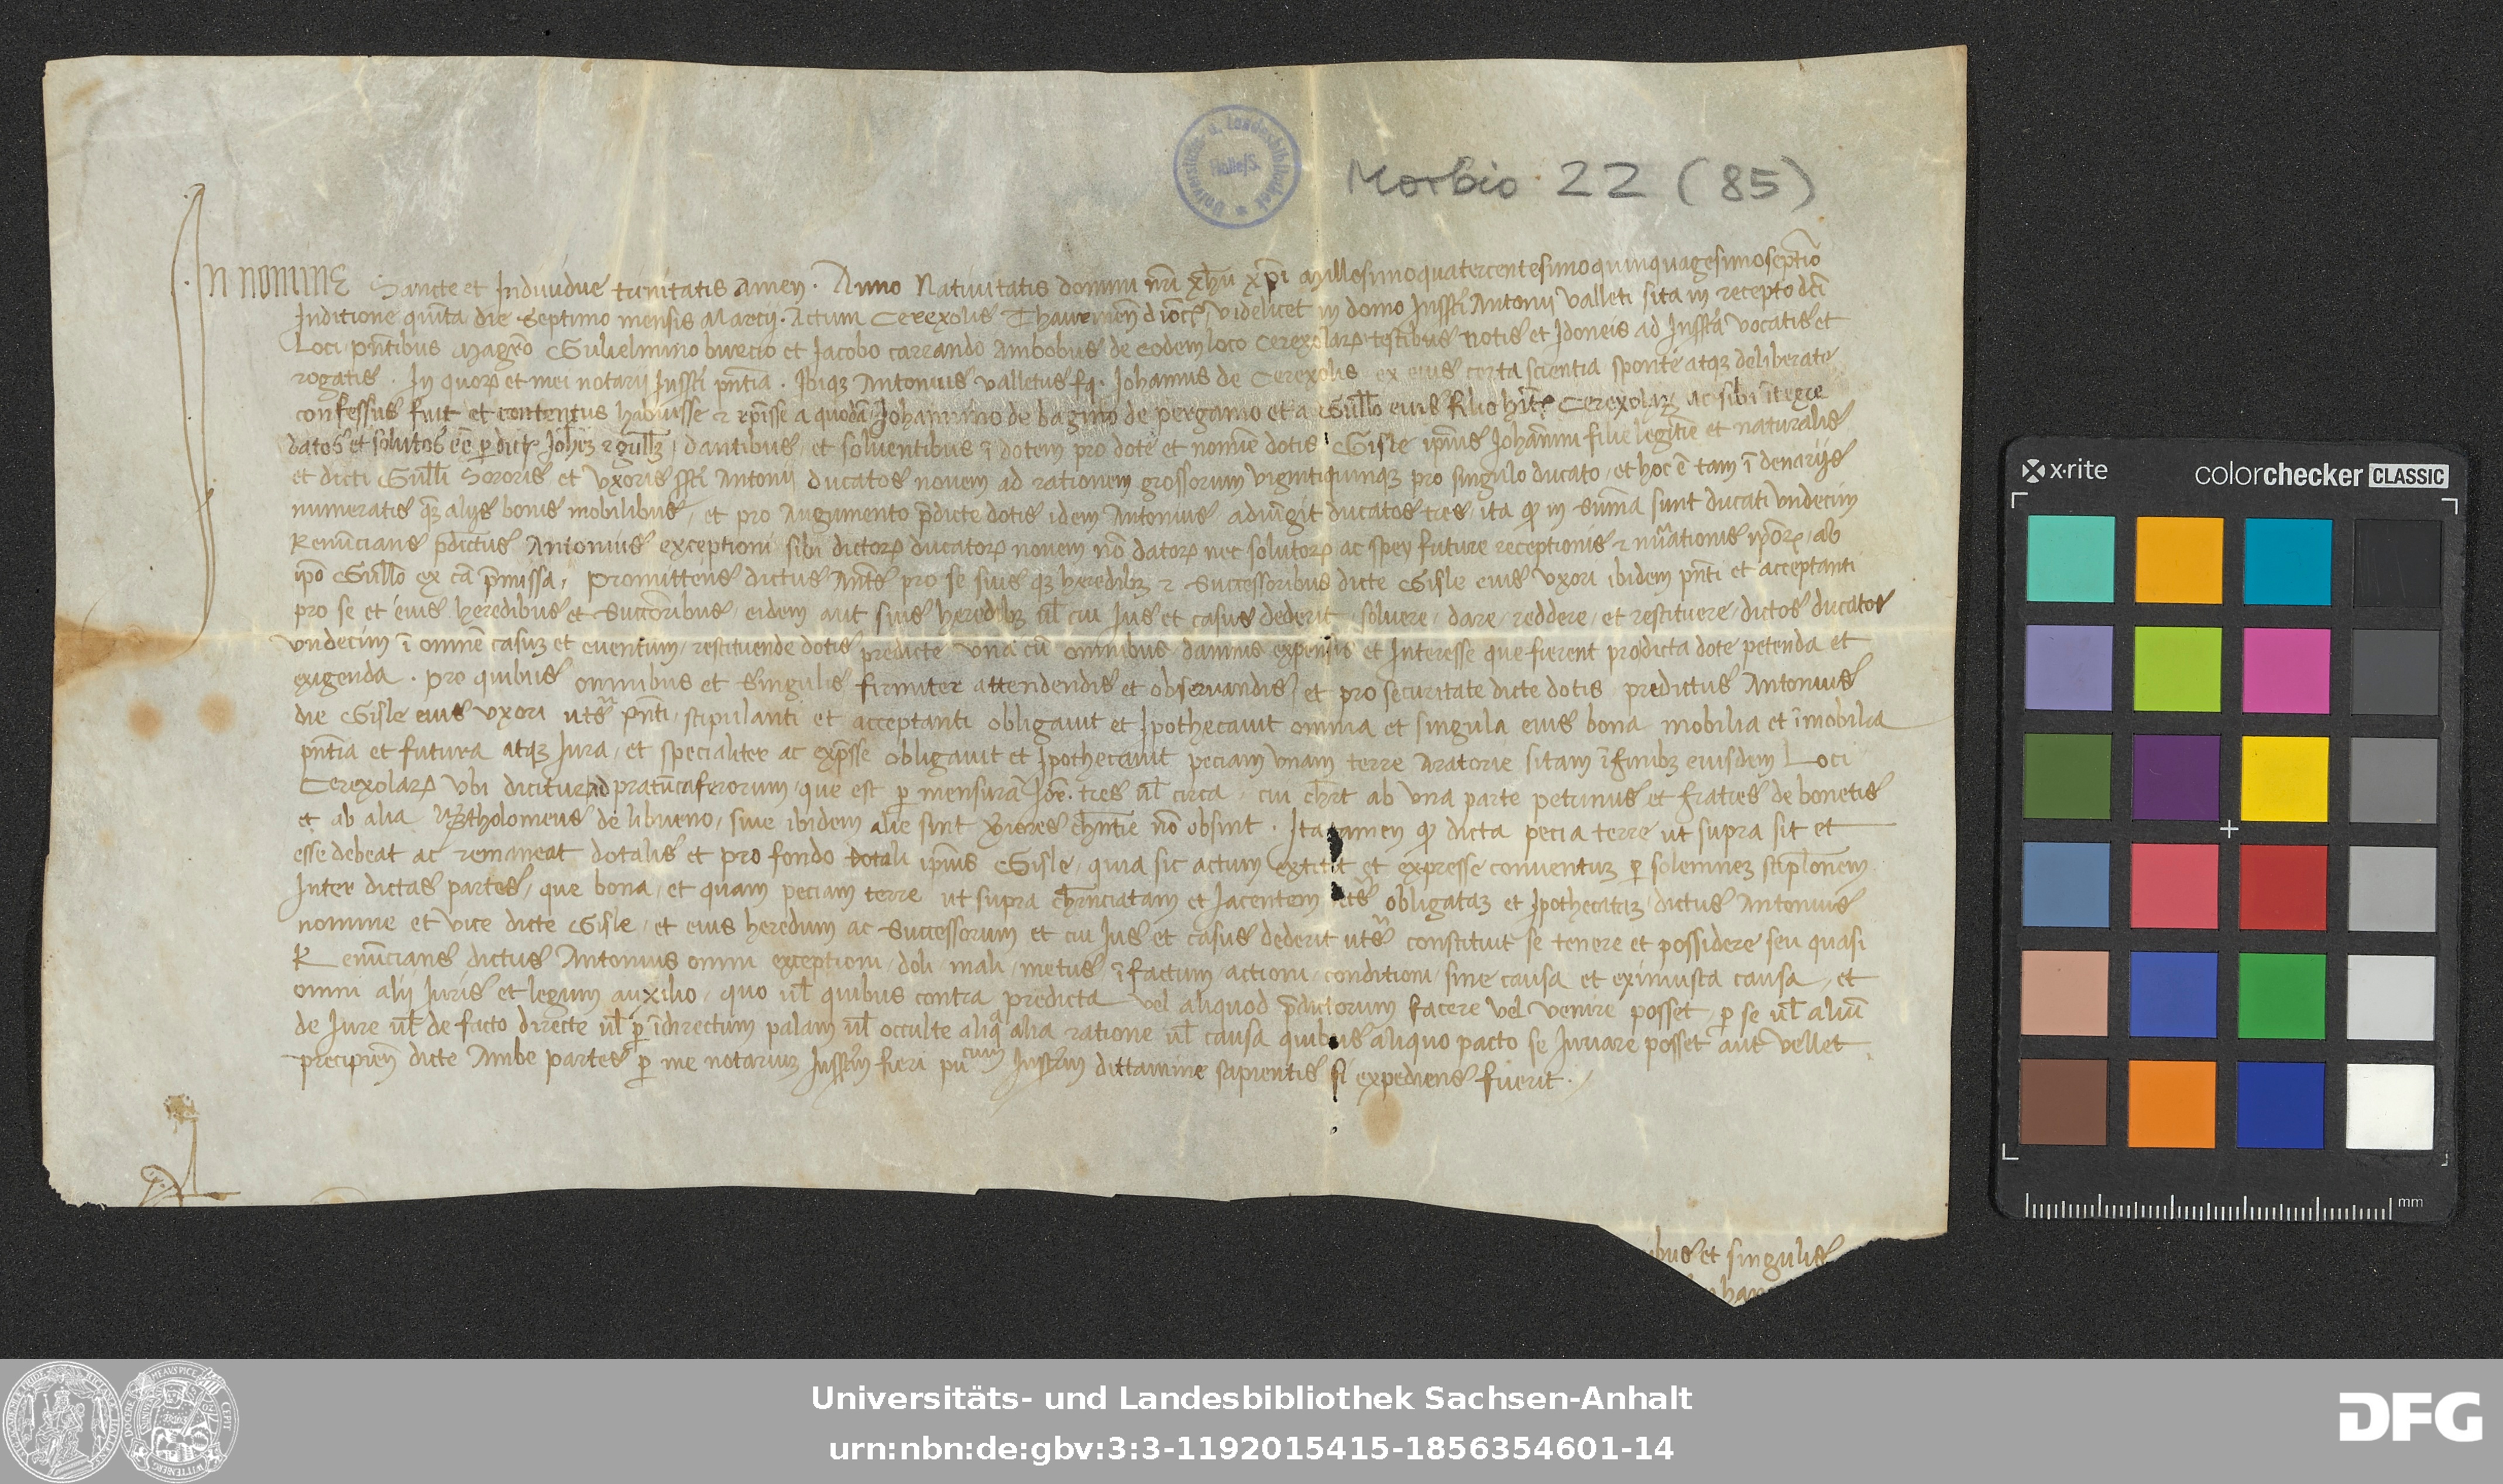 Universitäts- u. Landesbibliothek Halle/S.
Morbio 22 (85)
In nomine Sancte et Individue trinitatis Amen. Anno Nativitatis domini nrī yhu xpi Millesimoquatercentesimoquinquagesimoseptīo
Inditione quīta die Septimo mensis Marcij. Actum Cerexolis videlicet in domo Antonij Valleti sita in recepto dcī
Loci pntibus Magrō Gulielmino et Jacobo carrando Ambobus de eodem loco Cerexolarꝝ testibus notis et Idoneis ad vocatis et
rogatis. In quorꝝ et mei notarij pntia. Ibiqꝫ Antonius Valletus fq. Johannis de Cerexolis ex eius certa scientia sponte atqꝫ deliberate
confessus fuit et contentus habuisse a quodā Johannino de de pergamo et a Gullo eius filio Cerexolaꝝ ac sibi
datos et solutos dantibus et solventibus ī dotem pro dote et nomīe dotis Gisle ipīus Johannini filie legitīe et naturalis
et dicti Gullī Sororis et Vxoris Antonij ducatos novem ad rationem grossorum vigintiquinqꝫ pro singulo ducato et hoc ē tam ī denarijs
numeratis qꝫ alijs bonis mobilibus, et pro Augumento pdicte dotis idem Antonius adiūgit ducatos tres, ita in sūma sunt ducati vndecim
Renūcians pdictus Antonius exceptioni sibi dictorꝝ ducatorꝝ novem nō datorꝝ nec solutorꝝ ac spey future receptionis ab
ipō Gullō ex cā pmissa, Promittens dictus pro se suis qꝫ heredibꝫ et Successoribus dicte Gisle eius vxori ibidem pnti et acceptanti
pro se et eius heredibus et eidem aut suis heredibꝫ ul cui Jus et casus dederit solvere, dare, reddere, et restituere, dictos ducatos
vndecim ī omnē casuꝫ et eventum, restituende dotis predicte vna cū omnibus damnis expensis et Interesse que fierent dicta dote petenda et
exigenda. pro quibus omnibus et Singulis firmiter attendendis et observandis, et pro securitate dicte dotis predictus Antonius
Gisle eius vxori pnti, stipulanti et acceptanti obligavit et Ipothecavit omnia et singula eius bona mobilia et īmobilia
pntia et futura atqꝫ Jura, et specialiter ac expsse obligavit et Ipothecavit peciam vnam terre Aratorie sitam ī finibꝫ eiusdem Loci
Cerexolarꝝ Vbi dicitur ad pratū que est ꝑ mensurā tres ul circa, cui ab vna parte petrinus et fratres de bonetis
et ab alia sive ibidem alie sint nō obsint. Ita tamen dicta pecia terre ut supra sit et
esse debeat ac remaneat dotalis et pro fondo dotali ipīus Gisle, quia sic actum extitit et expresse conventuꝫ ꝑ solemneꝫ stiplonem
Inter dictas partes, que bona, et quam peciam terre ut supra et Jacentem obligataꝫ et Ipothecataꝫ dictus Antonius
nomine et vice dicte Gisle, et eius heredum ac Successorum et cui Jus et casus dederit constituit se tenere et possidere seu quasi
Renūcians dictus Antonius omni exceptioni, doli, mali, metus, ī factum, actioni, conditioni, sine causa et ex iniusta causa, et
omni alij Juris et legum auxilio, quo ul quibus contra predicta vel aliquod pdictorum facere vel venire posset, ꝑ se ul aliū
de Jure ul de facto directe ul ꝑ īdirectum palam ul occulte alia ratione ul causa quibus aliquo pacto se Juvare posset aut vellet
dicte Ambe partes ꝑ me notariuꝫ fieri dittamine sapientis si expediens fuerit.
et singulis
x·rite colorchecker CLASSIC
mm
Universitäts- und Landesbibliothek Sachsen-Anhalt
urn:nbn:de:gbv:3:3-1192015415-1856354601-14
DFG